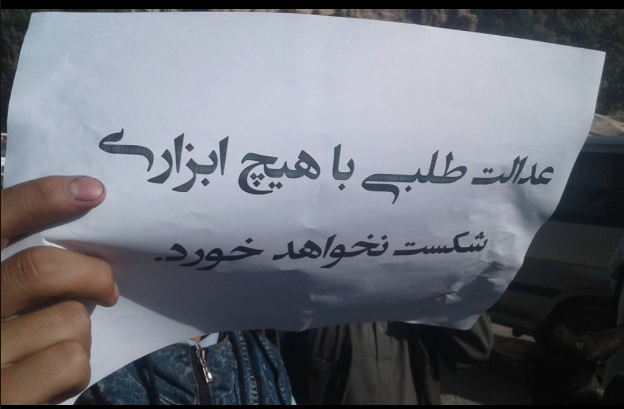 عدالت طلبی با هیچ ابزاری
شکست نخواهد خورد.